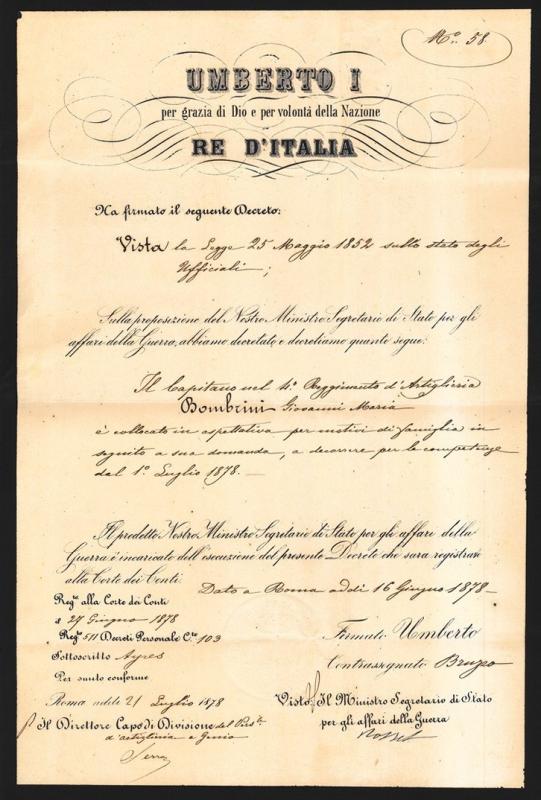 N.º 58
UMBERTO I
per grazia di Dio e per volontà della Nazione
RE D'ITALIA
Ha firmato il seguente Decreto:
Vista la Legge 25 Maggio 1852 sullo stato degli
Ufficiali;
Sulla proposizione del Nostro Ministro Segretario di Stato per gli
affari della Guerra, abbiamo decretato e decretiamo quanto segue:
Il Capitano nel 4º Reggimento d'Artiglieria
Bombrini Giovanni Maria
è collocato in aspettativa per motivi di famiglia in
seguito a sua domanda, a decorrere per le competenze
dal 1º Luglio 1878.
Il predetto Nostro Ministro Segretario di Stato per gli affari della
Guerra è incaricato dell'esecuzione del presente Decreto che sarà registrato
alla Corte dei Conti
Dato a Roma addì 16 Giugno 1878
Reg.º alla Corte dei Conti
a 27 Giugno 1878
Reg.º 511 Decreti Personale C.te 103
Sottoscritto Ayres
Per sunto conforme
Roma addì 21 Luglio 1878
Il Direttore Capo di Divisione del
d'artiglieria e Genio
Firmato Umberto
Contrassegnato Bruzzo
Visto, Il Ministro Segretario di Stato
per gli affari della Guerra